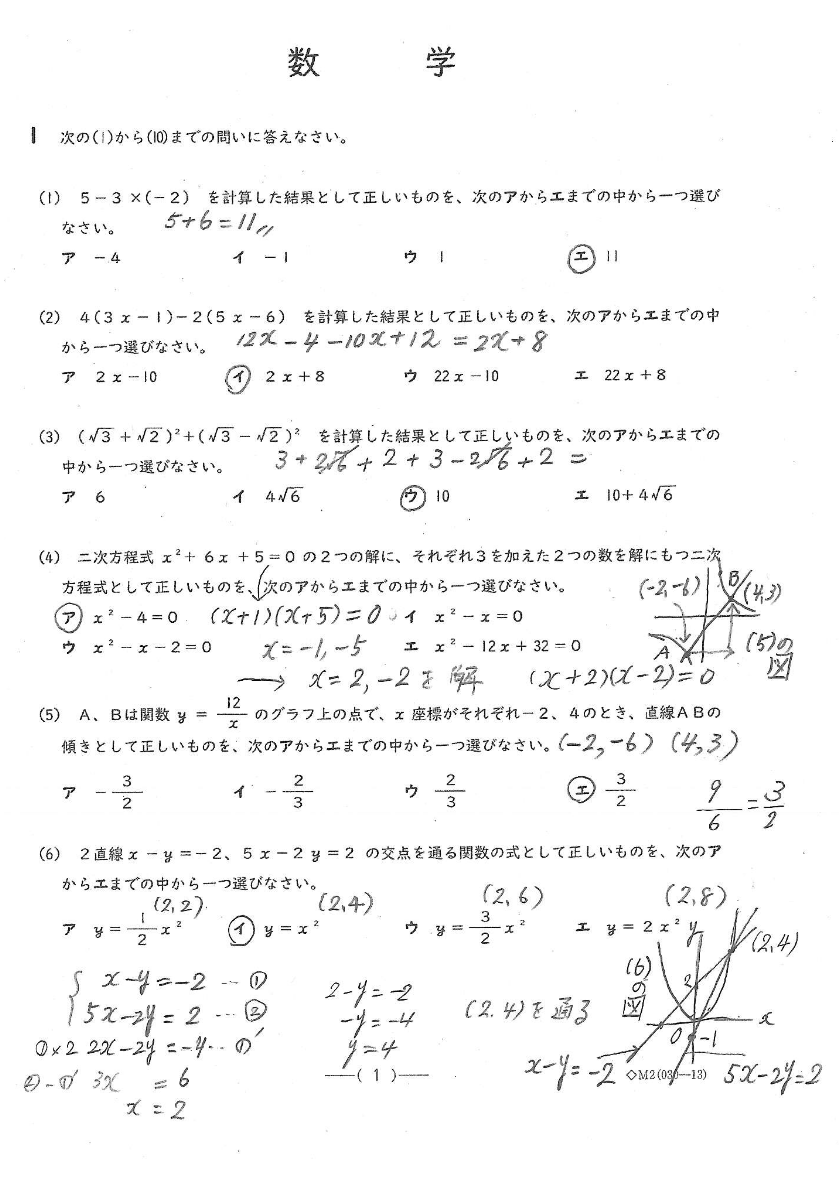 数 学
1 次の(1)から(10)までの問いに答えなさい。
(1) 5－3×(－2) を計算した結果として正しいものを、次のアからエまでの中から一つ選び
なさい。 5+6=11〃
ア －4 イ －1 ウ 1 エ 11
(2) 4(3x－1)－2(5x－6) を計算した結果として正しいものを、次のアからエまでの中
から一つ選びなさい。 12x－4－10x+12 =2x+8
ア 2x－10 イ 2x＋8 ウ 22x－10 エ 22x＋8
(3) (√3＋√2)²＋(√3－√2)² を計算した結果として正しいものを、次のアからエまでの
中から一つ選びなさい。 3+2√6+2+3-2√6+2=
ア 6 イ 4√6 ウ 10 エ 10＋4√6
(4) 二次方程式 x²＋6x＋5＝0 の2つの解に、それぞれ3を加えた2つの数を解にもつ二次
方程式として正しいものを、次のアからエまでの中から一つ選びなさい。 (-2,-6) B (4,3)
ア x²－4＝0 (x+1)(x+5)=0 イ x²－x＝0
ウ x²－x－2＝0 x=-1,-5 エ x²－12x＋32＝0 A (5)の図
→ x=2,-2を解 (x+2)(x-2)=0
(5) A、Bは関数 y = 12/x のグラフ上の点で、x 座標がそれぞれ－2、4のとき、直線ABの
傾きとして正しいものを、次のアからエまでの中から一つ選びなさい。 (-2,-6) (4,3)
ア －3/2 イ －2/3 ウ 2/3 エ 3/2 9/6=3/2
(6) 2直線 x－y＝－2、5x－2y＝2 の交点を通る関数の式として正しいものを、次のア
からエまでの中から一つ選びなさい。
(2,2) (2,4) (2,6) (2,8)
ア y=1/2x² イ y=x² ウ y=3/2x² エ y=2x² y (2,4)
x-y=-2 … ① 2-y=-2 (6)の図 2
5x-2y=2 … ② -y=-4 (2.4)を通る x
①×2 2x-2y=-4 … ①′ y=4 0 -1
②-①′ 3x =6 ―( 1 )― x-y=-2 ◇M2(030―13) 5x-2y=2
x=2